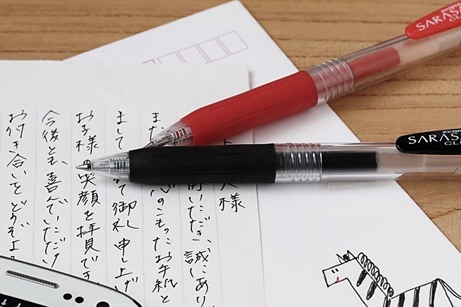 人様
開いただき、誠にあり
また 心のこもったお手紙と
まして 御礼申し上げ
お子様の笑顔を拝見でき
今後とも喜んでいただけ
お付き合いをどうぞよ
SARAS
ZEBR
SARAS
CL